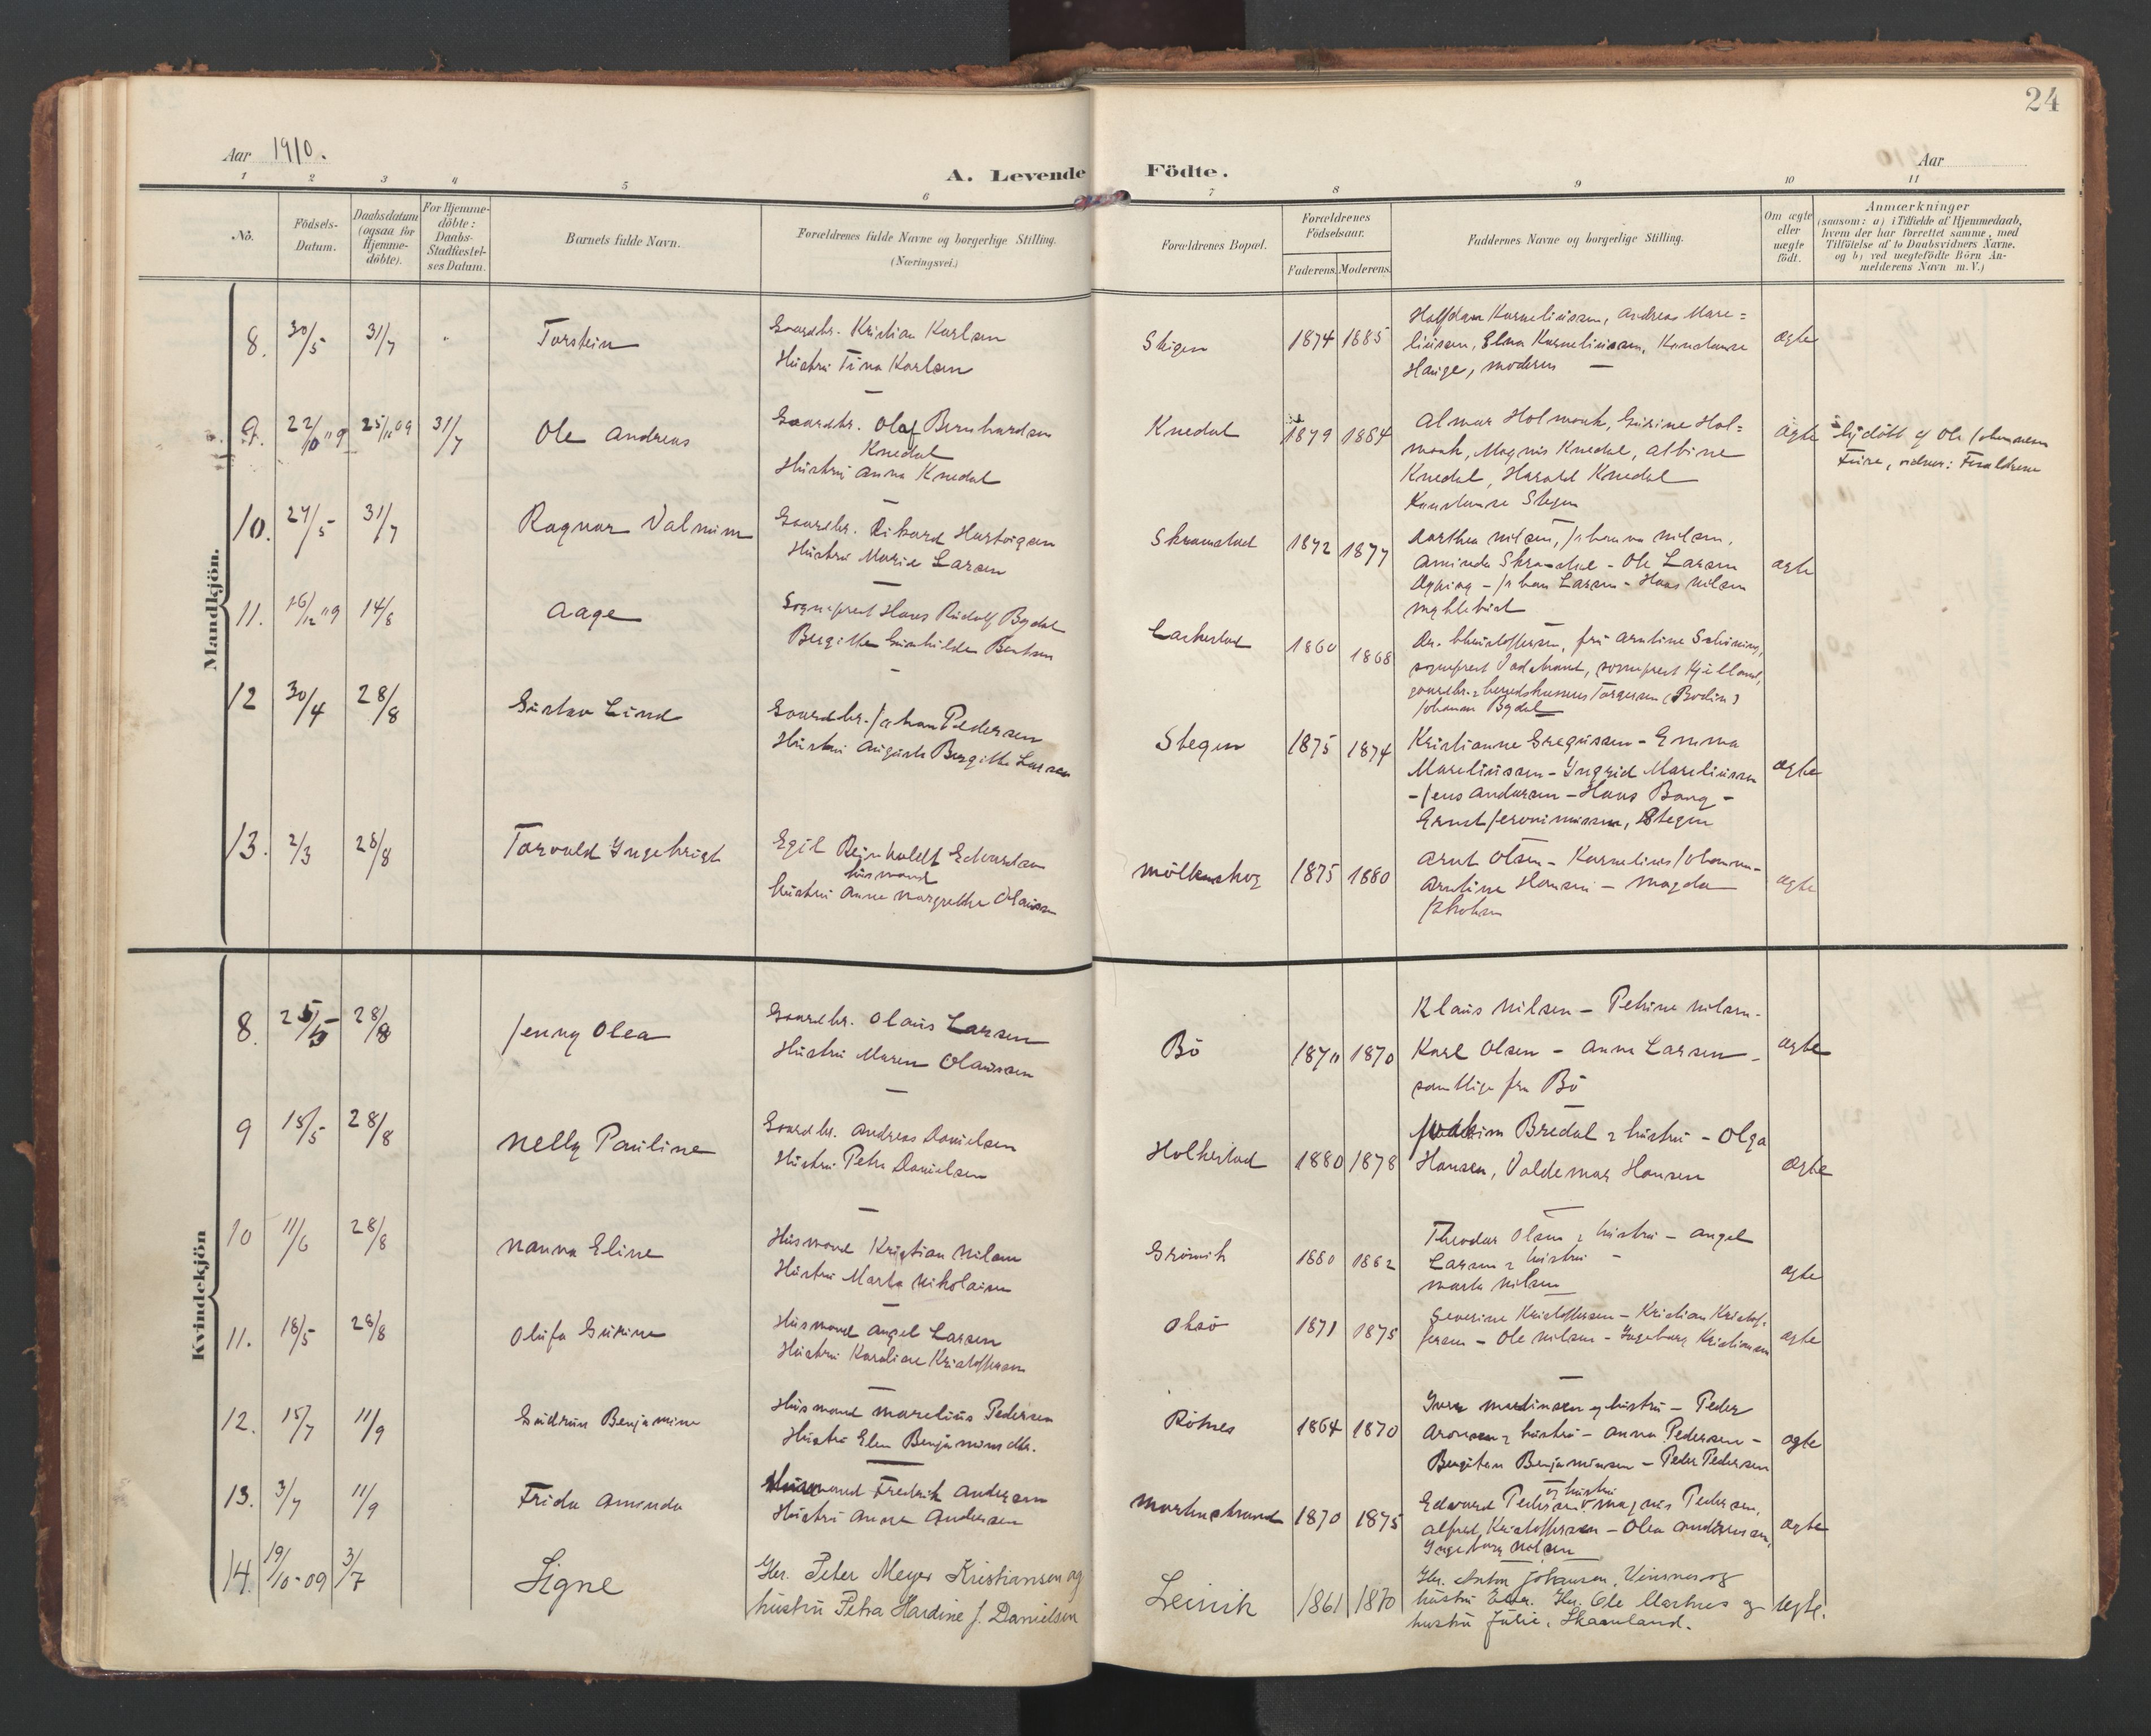 24
Aar 1910.
A. Levende Födte.
Aar
1 2 3 4 5 6 7 8 9 10 11
No.
Födsels-Datum.
Daabsdatum (ogsaa for Hjemme-döbte).
For Hjemme-döbte: Daabs-Stadfæstel-ses Datum.
Barnets fulde Navn.
Forældrenes fulde Navne og borgerlige Stilling. (Næringsvei.)
Forældrenes Bopæl.
Forældrenes Födselsaar.
Faderens. Moderens.
Faddernes Navne og borgerlige Stilling.
Om ægte eller uægte födt.
Anmærkninger
(saasom: a) i Tilfælde af Hjemmedaab,
hvem der har forrettet samme, med
Tilföielse af to Daabsvidners Navne.
og b) ved uægtefödte Börn An-
melderens Navn m. V.)
Mandkjön.
8. 30/5 31/7 Torstein
Gaardbr. Kristian Karlsen
Hustru Tina Karlsen
Steigen 1874 1885
Halfdan Korneliussen, Andreas Mare=
liussen, Elna Korneliussen, Konstanse
Hauge, moderen
ægte
9. 22/10 09 25/11 09 31/7 Ole Andreas
Gaardbr. Olaf Bernhardsen
Knedal
Hustru Anna Knedal
Knedal 1879 1884
Almar Holmaak, Gurine Hol=
maak, Magnus Knedal, Albine
Knedal, Harald Knedal
Konstanse Stegen
ægte
hjdöbt af Ole Johannesen
Furre, vidner: Forældrene
10. 27/5 31/7 Ragnar Valmim
Gaardbr. Rikard Hartvigsen
Hustru Marie Larsen
Skramstad 1872 1877
Dorthea Nilsen, Johanna Nilsen,
Aminda Skramstad - Ole Larsen
Johan Larsen - Hans Nilsen
Myklebust
ægte
11. 16/12 09 14/8 Aage
Sogneprest Hans Rudolf Bydal
Bergitte Gunhilde Bentsen
Laskestad 1860 1868
Dr. Christoffersen, fru Arntine Schöning,
sogneprest Vadstrand, sogneprest Kjelland,
gaardbr. & herredskasserer Torgersen (Bodin)
Johanna Bydal
12 30/4 28/8 Gustav Lind
Gaardbr. Johan Pedersen
Hustru Augusta Bergitte Larsen
Stegen 1875 1874
Kristianne Gregusen - Emma
Mareliussen - Yngrid Mareliussen
- Jens Andersen - Hans Bang -
Ernst Jeronimussen, Stegen
ægte
13. 2/3 28/8 Torvald Yngebrigt
Egil Reinholdt Edvardsen
husmand
hustru Anne Margrethe Olaussen
Mölkeskog 1875 1880
Arnt Olsen - Kornelius Johannes-
Arntine Hansen - Magda
Jakobsen
ægte
Kvindekjön
8. 25/5 28/8 Jenny Olea
Gaardbr. Olaus Larsen
Hustru Maren Olaussen
Bö 1870 1870
Klaus Nilsen - Petrine Nilsen -
Karl Olsen - Anna Larsen -
samtlige fra Bö
ægte
9 15/5 28/8 Nelly Pauline
Gaardbr. Andreas Danielsen
Hustru Petra Danielsen
Holkestad 1880 1878
Joakim Bredal & hustru - Olga
Hansen, Valdemar Hansen
ægte
10 11/6 28/8 Nanna Eline
Husmand Kristian Nilsen
Hustru Marta Nikolaisen
Grönvik 1880 1882
Theodor Olsen & hustru - Angel
Larsen & hustru -
Marta Nilsen
ægte
11. 18/5 28/8 Olufa Gurine
Husmand Angel Larsen
Hustru Karoline Kristoffersen
Oksö 1871 1875
Severine Kristoffersen - Kristian Kristof-
fersen - Ole Nilsen - Ingeborg Kristiansen
ægte
12. 15/7 11/9 Gudrun Benjamine
Husmand Marelius Pedersen
Hustru Elen Benjaminsdtr.
Rötnes 1864 1870
Iver Martinsen og hustru - Peder
Aronsen & hustru - Anna Pedersen -
Bergitha Benjaminsen - Peder Pedersen
ægte
13. 3/7 11/9 Frida Aminda
Husmand Fredrik Andersen
Hustru Anna Andersen
Markustrand 1870 1875
og hustru
Edvard Pedersen Magnus Pedersen,
Alfred Kristoffersen - Olea Andreassen,
Ingeborg Nilsen
ægte
14. 19/10-09 3/7 Signe
Gbr. Peter Meyer Kristiansen og
hustru Petra Hardine J. Danielsen
Leinek 1861 1870
Gbr. Anton Johansen, Vinsnes og
hustru Elen. Gbr. Ole Aasnes og
hustru Julie, Skaanland.
ægte.